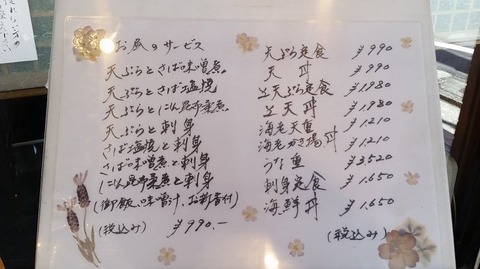 お昼のサービス
天ぷらとさば味噌煮
天ぷらとさば塩焼
天ぷらとにしん昆布煮
天ぷらと刺身
さば塩焼と刺身
さば味噌煮と刺身
と刺身
(御飯、味噌汁、お新香付)
(税込み) ¥990.-
天ぷら定食 ¥990
天丼 ¥990
上天ぷら定食 ¥1980
上天丼 ¥1980
海老天重 ¥1210
海老かき揚丼 ¥1210
うな重 ¥3,520
刺身定食 ¥1,650
海鮮丼 ¥1,650
(税込み)